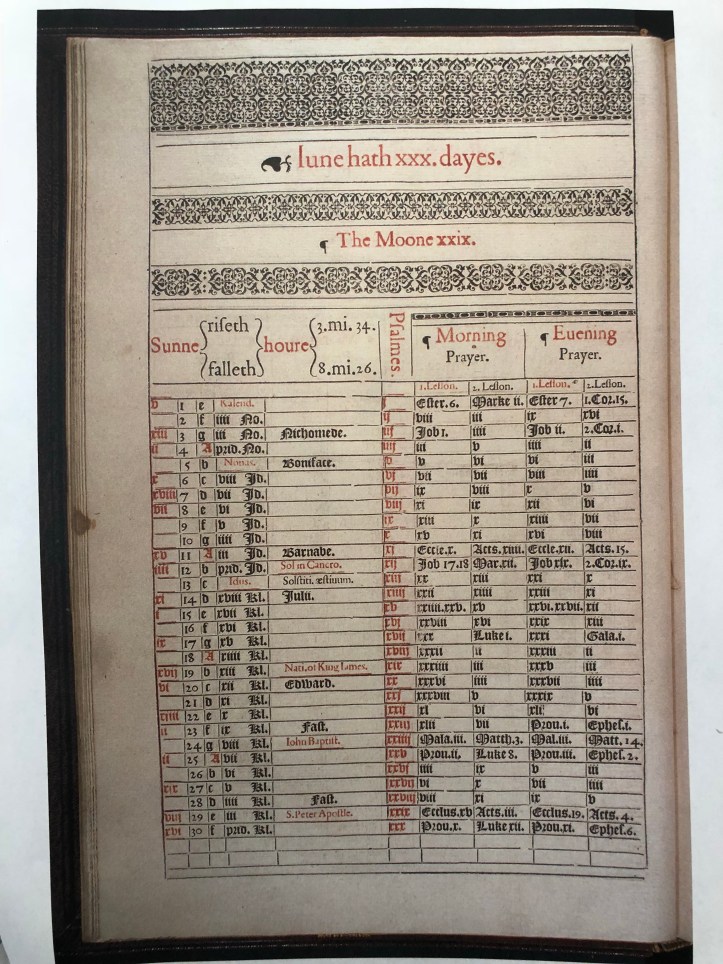 Iune hath xxx. dayes.
The Moone xxix.
Sunne riseth falleth houre 3.mi. 34. 8.mi.26.
Psalmes.
Morning Prayer.
Euening Prayer.
1.Lesson. 2. Lesson. 1.Lesson. 2.Lesson.
1 e Kalend. j Ester.6. Marke ii. Ester 7. 1.Cor.15.
2 f iiii No. ij viii iii ix xvi
xiii 3 g iii No. Nichomede. iij Job i. iiii Job ii. 2.Cor.i.
ii 4 A prid.No. iiij iii v iiii ii
5 b Nonas. Boniface. v v vi vi iii
x 6 c viii Id. vj vii vii viii iiii
xviii 7 d vii Id. vij ix viii x v
vii 8 e vi Id. viij xi ix xii vi
9 f v Id. ix xiii x xiiii vii
10 g iiii Id. x xv xi xvi viii
xv 11 A iii Id. Barnabe. xj Eccle.x. Acts.xiiii. Eccle.xii. Acts.15.
iiii 12 b prid. Id. Sol in Cancro. xij Job 17.18 Mar.xii. Job xix. 2.Cor.ix.
13 c Idus. Solstiti. æstiuum. xiij xx xiii xxi x
xi 14 d xviii Kl. Julii. xiiij xxii xiiii xxiii xi
15 e xvii Kl. xv xxiiii.xxv. xv xxvi.xxvii. xii
16 f xvi Kl. xvj xxviii xvi xxix xiii
ix 17 g xv Kl. xvij xxx Luke i. xxxi Gala.i.
18 A xiiii Kl. xviij xxxii ii xxxiii ii
xvij 19 b xiii Kl. Nati.of King Iames. xix xxxiiii iii xxxv iii
vi 20 c xii Kl. Edward. xx xxxvi iiii xxxvii iiii
21 d xi Kl. xxj xxxviii v xxxix v
xiiii 22 e x Kl. xxij xl vi xli vi
ii 23 f ix Kl. Fast. xxiij xlii vii Prou.i. Ephes.i.
24 g viii Kl. Iohn Baptist. xxiiij Mala.iii. Matth.3. Mal.iii. Matt. 14.
25 A vii Kl. xxv Prou.ii. Luke 8. Prou.iii. Ephes.2.
26 b vi Kl. xxvj iiii ix v iii
xix 27 c v Kl. xxvij vi x vii iiii
28 d iiii Kl. Fast. xxviij viii xi ix v
viij 29 e iii Kl. S.Peter Apostle. xxix Ecclus.xv Acts.iii. Ecclus.19. Acts.4.
xvi 30 f prid. Kl. xxx Prou.x. Luke xii. Prou.xi. Ephes.6.